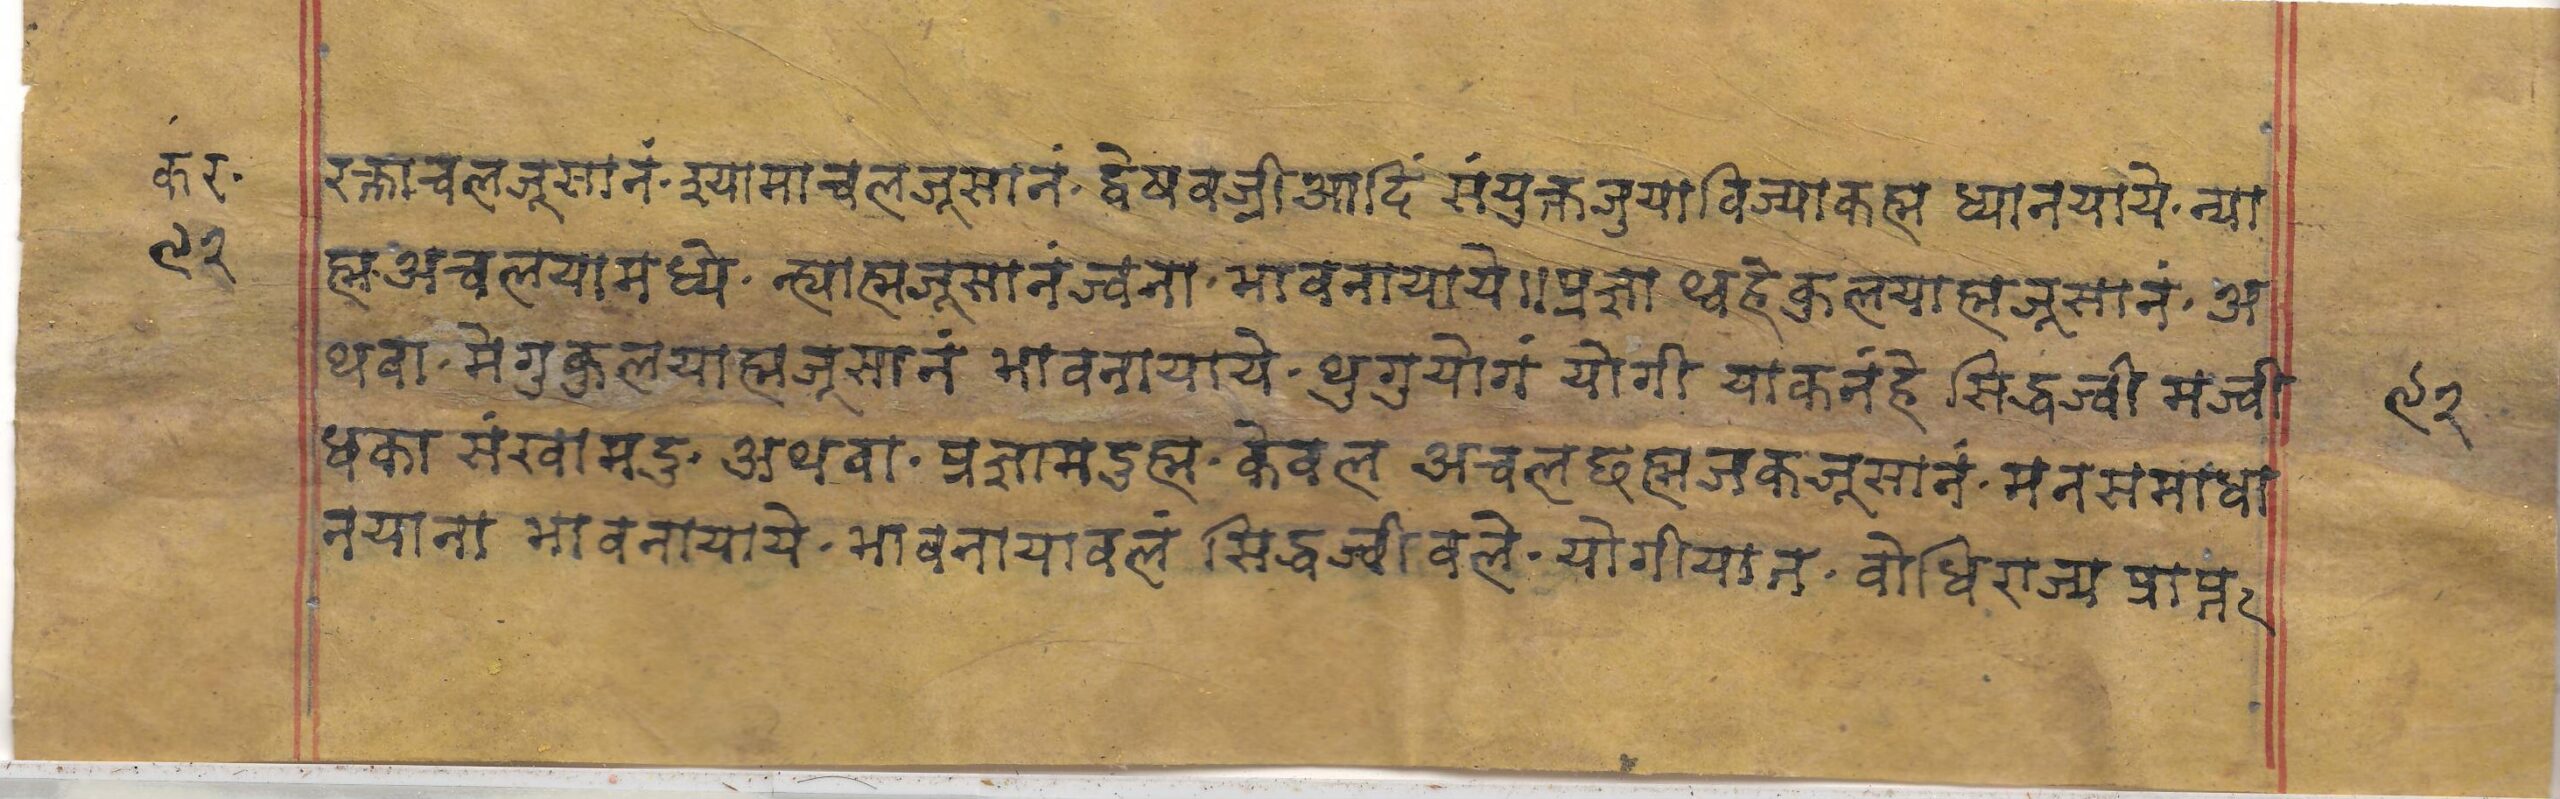 कर॰ रक्ताचलजूसानं॰ श्यामाचलजूसानं॰ द्वेषवज्रीआदिं संयुक्तजुयाविज्याकह्म ध्यानयाये॰ न्या
९२ ह्म अचलयामध्ये॰ न्ह्याह्मजूसानंज्वना॰ भावनायाये॥ प्रज्ञा थ्वहेकुलयाह्मजूसानं॰ अ
थवा॰ मेगुकुलयाह्मजूसानं भावनायाये॰ थुगुयोगं योगी याकनंहे सिद्धज्वी मज्वी ९२
धका संखामदु॰ अथवा॰ प्रज्ञामदुह्म॰ केवल अचलछह्मजकजूसानं॰ मनसमाधा
नयाना भावनायाये॰ भावनायावलं सिद्धज्वीवले॰ योगीयात॰ वोधिराज्य प्राप्त